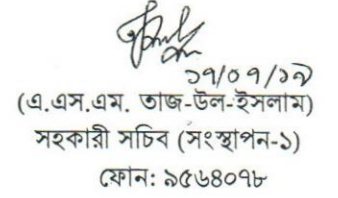 ১৭/০৭/১৯
(এ.এস.এম. তাজ-উল-ইসলাম)
সহকারী সচিব (সংস্থাপন-১)
ফোন: ৯৫৬৪০৭৮